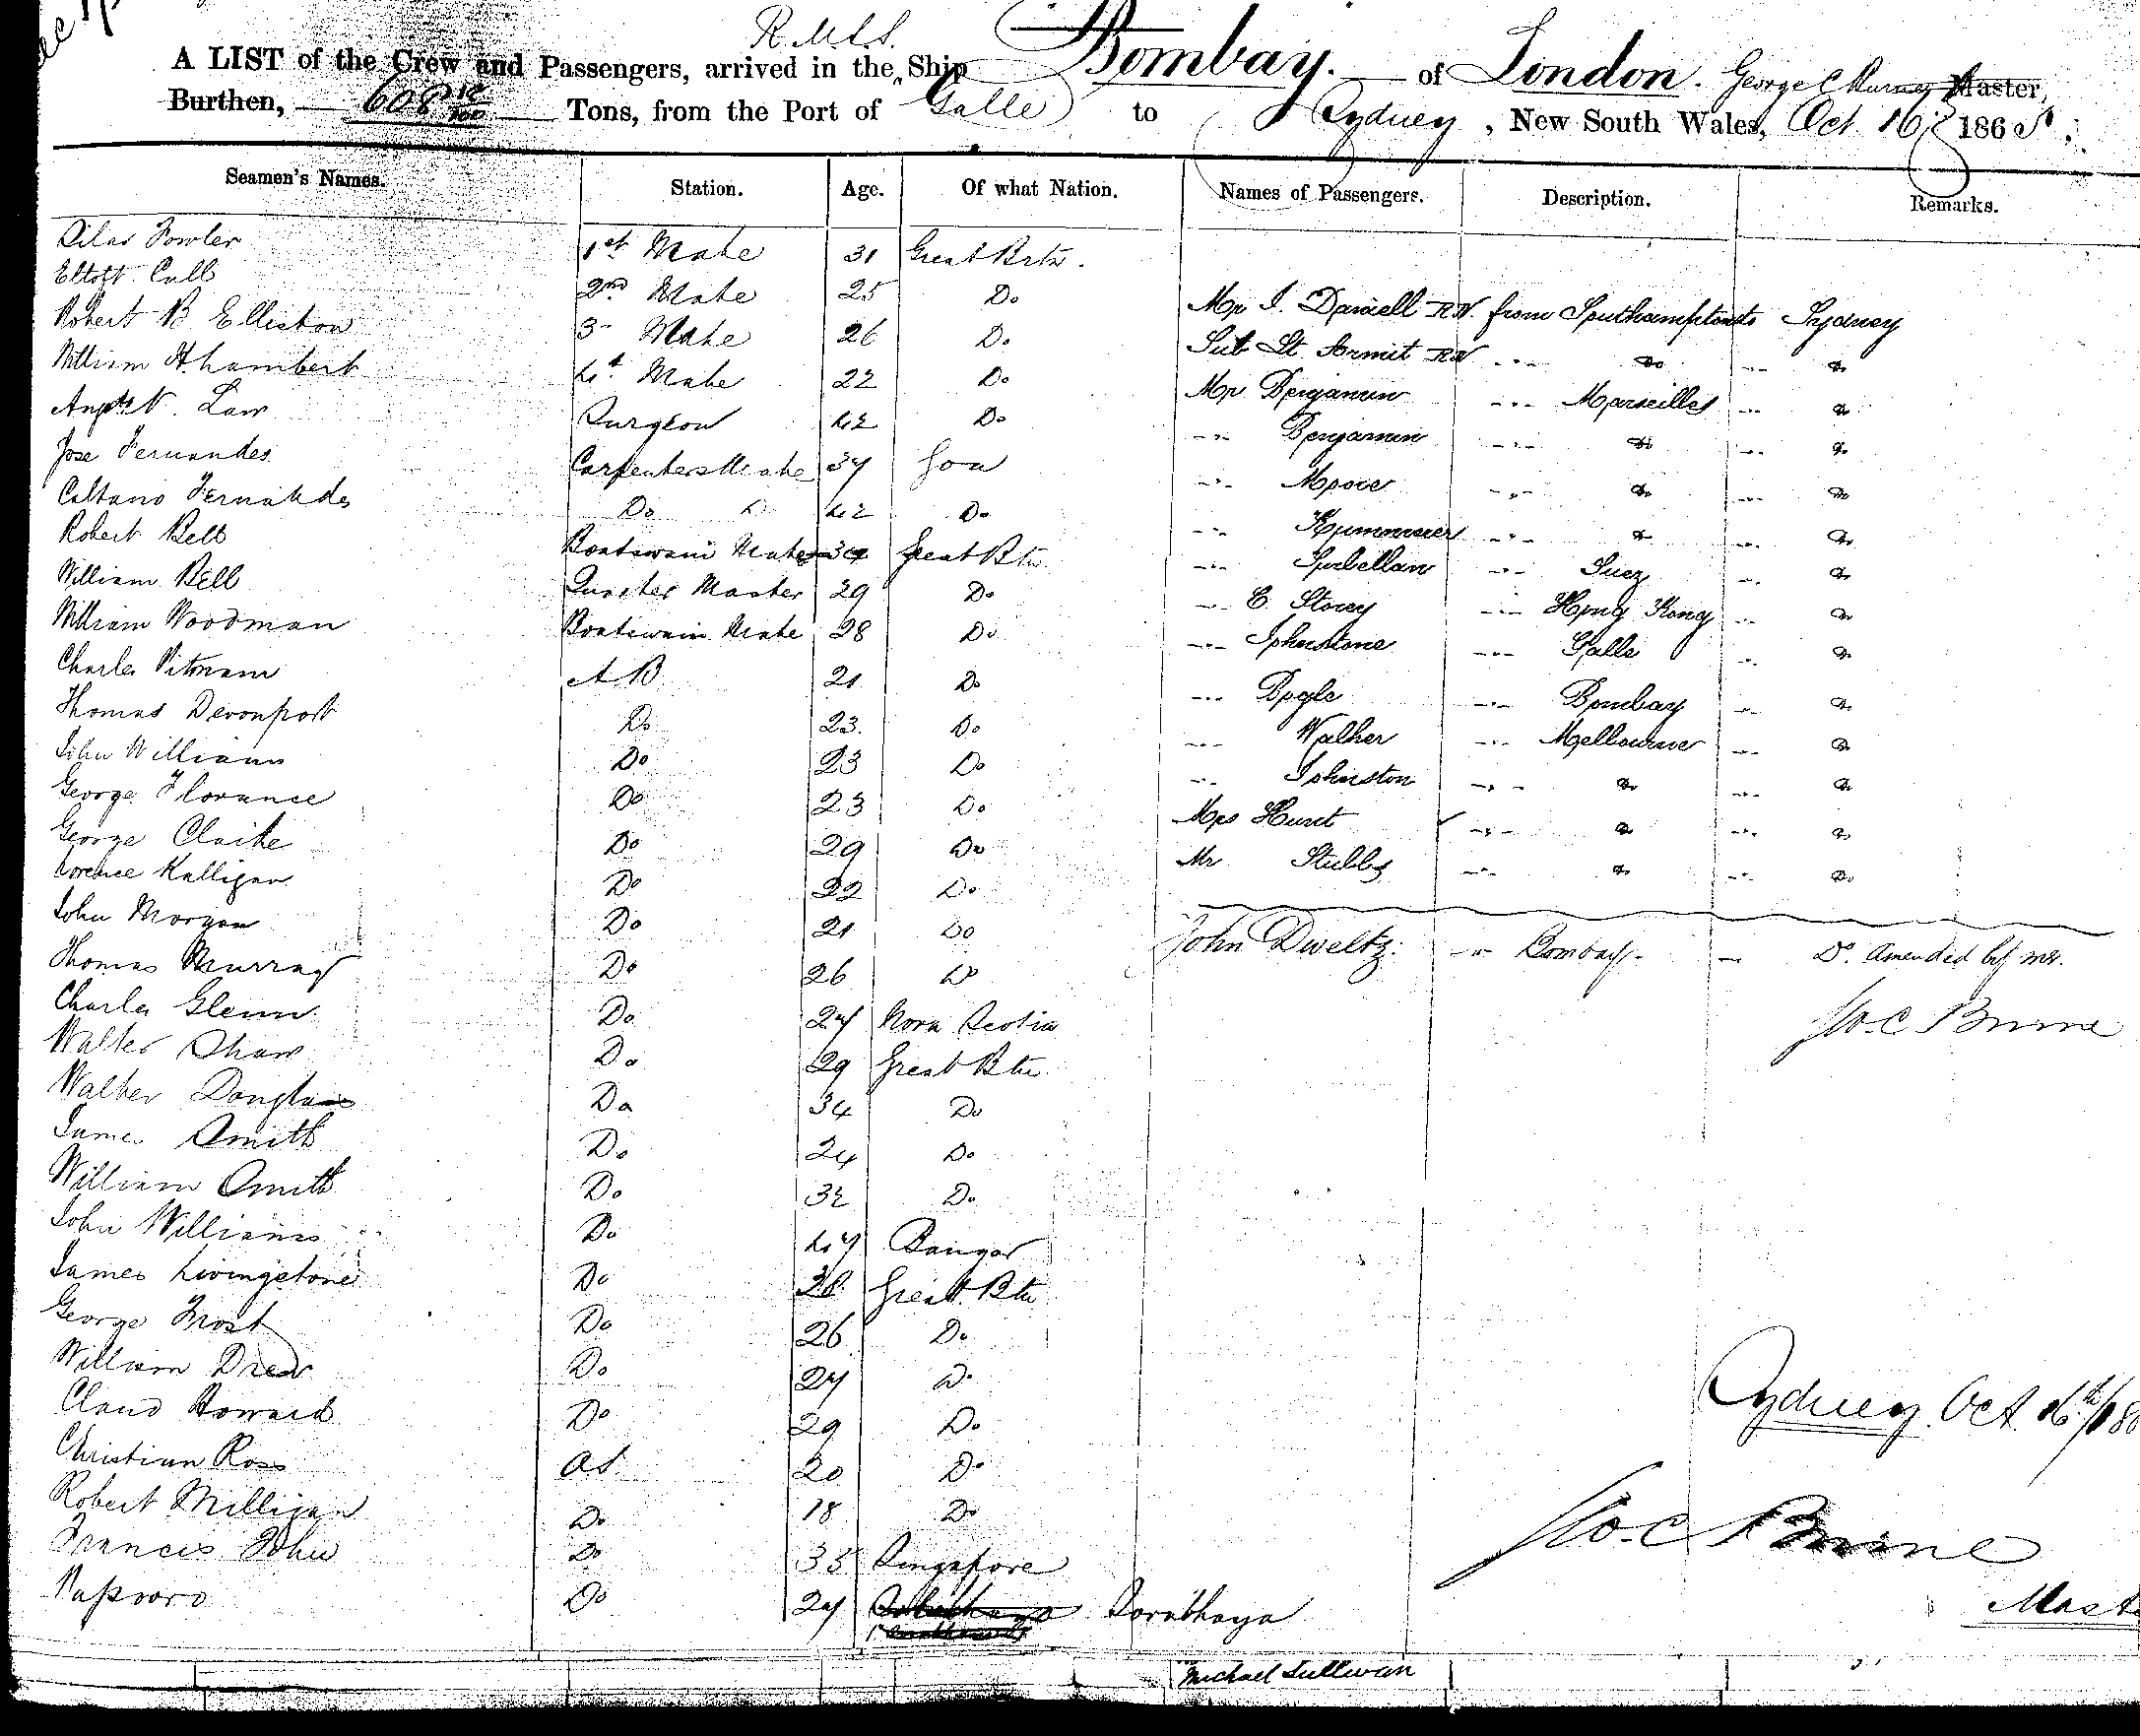 R.M.S.S.
A LIST of the Crew and Passengers, arrived in the Ship Bombay. of London. George C Master,
Burthen, 608 Tons, from the Port of Galle to Sydney, New South Wales, Oct 16 1865.
Seamen's Names. Station. Age. Of what Nation. Names of Passengers. Description. Remarks.
Silas Fowler 1st Mate 31 Great Brtn.
Cull 2nd Mate 25 Do
Mr J. Darnell R.N. from Southampton to Sydney
Robert B Elliston 3 Mate 26 Do
Sub Lt. Armit RN " Do " Do
William H Lambert 4t Mate 22 Do
Mr Benjamin " Marseilles " Do
Law Surgeon 42 Do
" Benjamin " Do " Do
Jose Fernandes Carpenters Mate 37 Goa
" Moore " Do " Do
Caetano Fernandes Do Do 42 Do
" " Do " Do
Robert Bell Boatswains Mate 34 Great Btn
" " Suez " Do
William Bell Quarter Master 29 Do
" C. Storey " Hong Kong " Do
William Woodman Boatswain Mate 28 Do
" Johnstone " Galle " Do
Charles Pitman A B 21 Do
" Bogle " Bombay " Do
Thomas Devonport Do 23. Do
" Walker " Melbourne " Do
John Williams Do 23 Do
" Johnston " Do " Do
George Florance Do 23 Do
Mrs Hunt " Do " Do
George Clarke Do 29 Do
Mr Stubbs " Do " Do
Kalligan Do 22 Do
John Morgan Do 21 Do
John Dweltz. " Bombay. — Do. Amended by me.
Thomas Murray Do 26 Do
Charles Glenn Do 27 Nova Scotia
Walter Shaw Do 29 Great Btn
Walter Douglass Do 34 Do
James Smith Do 24 Do
William Smith Do 32 Do
John Williams Do 47 Bangor
James Livingstone Do 28 Great Btn
George Frost Do 26 Do
William Drew Do 27 Do
Claud Howard Do 29 Do
Sydney. Oct. 16th/18
Christian Ross OS 20 Do
Robert Milligan Do 18 Do
Francis John Do 35 Singapore
Do 27 Sorabhaya
Mast
Michael Sullivan